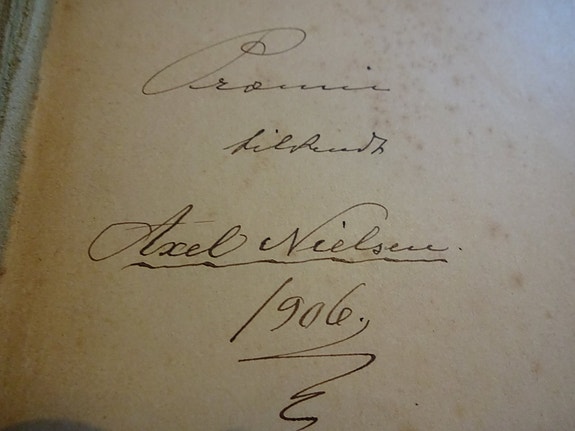 Præmie
tilkendt
Axel Nielsen.
1906.